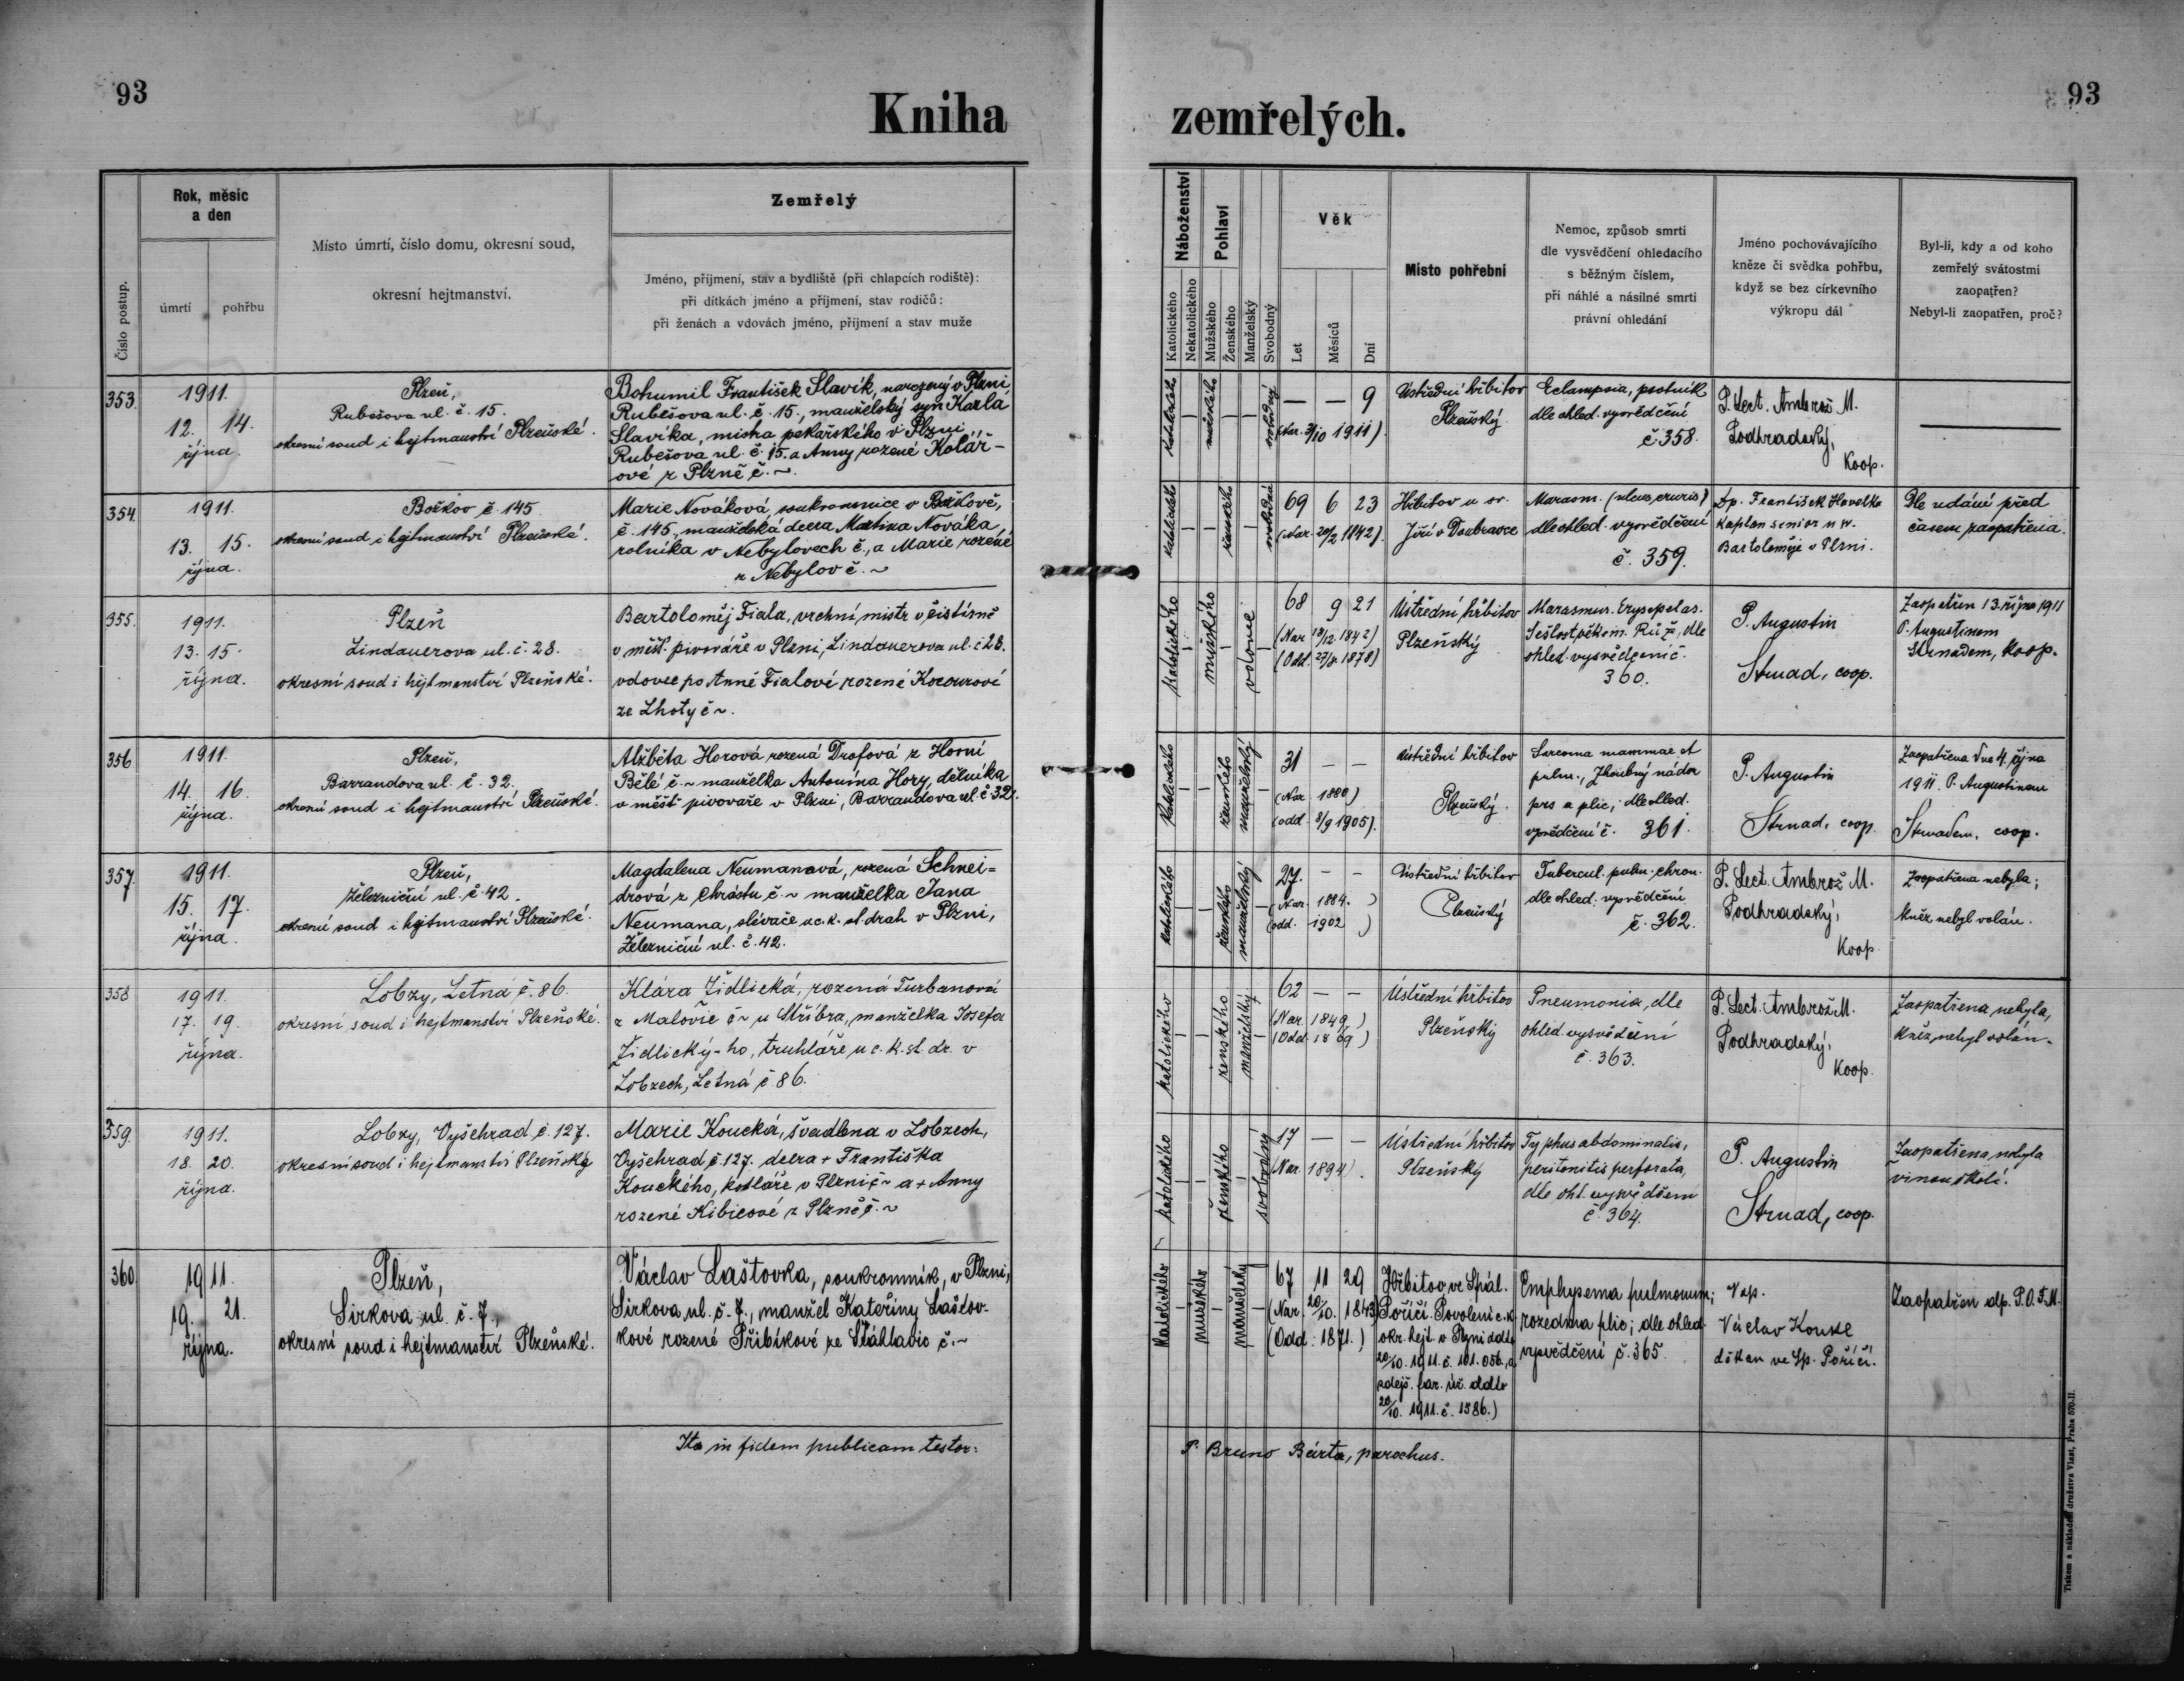 93
Kniha
zemřelých.
93
Číslo postup.
Rok, měsíc
a den
úmrtí
pohřbu
Místo úmrtí, číslo domu, okresní soud,
okresní hejtmanství.
Zemřelý
Jméno, příjmení, stav a bydliště (při chlapcích rodiště):
při dítkách jméno a příjmení, stav rodičů:
při ženách a vdovách jméno, příjmení a stav muže
Náboženství
Katolického
Nekatolického
Pohlaví
Mužského
Ženského
Manželský
Svobodný
Věk
Let
Měsíců
Dní
Místo pohřební
Nemoc, způsob smrti
dle vysvědčení ohledacího
s běžným číslem,
při náhlé a násilné smrti
právní ohledání
Jméno pochovávajícího
kněze či svědka pohřbu,
když se bez církevního
výkropu dál
Byl-li, kdy a od koho
zemřelý svátostmi
zaopatřen?
Nebyl-li zaopatřen, proč?
353.
1911.
12. 14.
října.
Plzeň,
Rubešova ul. č. 15.
okresní soud i hejtmanství Plzeňské.
Bohumil František Slavík, narozený v Plzni
Rubešova ul. č. 15., manželský syn Karla
Slavíka, mistra pekařského v Plzni,
Rubešova ul. č. 15. a Anny rozené Kolář-
ové z Plzně č. ~.
katolického
mužského
svobodný
— — 9
(Nar. 3/10 1911).
Ústřední hřbitov
Plzeňský
Eclampsia, psotník
dle ohled. vysvědčení
č 358.
P. Lect. Ambrož M.
Podhradský,
Koop.
354.
1911.
13. 15.
října.
Božkov č. 145
okresní soud i hejtmanství Plzeňské.
Marie Nováková, soukromnice v Božkově,
č. 145, manželská dcera Martina Nováka,
rolníka v Nebylovech č., a Marie rozené
z Nebylov č. ~
katolického
ženského
svobodná
69 6 23
(Nar. 20/2 1842).
Hřbitov u sv.
Jiří v Doubravce
Marasm. (ulcus cruris)
dle ohled. vysvědčení
č. 359.
Dp. František Havelka
kaplan senior u sv.
Bartoloměje v Plzni.
Dle udání před
časem zaopatřena.
355.
1911.
13. 15.
října.
Plzeň
Lindauerova ul. č. 28.
okresní soud i hejtmanství Plzeňské.
Bartoloměj Fiala, vrchní mistr v čistírně
v měšť. pivováře v Plzni, Lindauerova ul. č 28.
vdovec po Anně Fialové rozené Kocourové
ze Lhoty č ~.
katolického
mužského
vdovec
68 9 21
(Nar. 13/12 1842)
Ústřední hřbitov
Plzeňský
Marasmus. Erysipelas.
Sešlost věkem. Růže, dle
ohled. vysvědčení č.
360.
P. Augustin
Strnad, coop.
Zaopatřen 13. října 1911
P. Augustinem
Strnadem, koop.
356
1911.
14. 16.
října.
Plzeň,
Barrandova ul. č. 32.
okresní soud i hejtmanství Plzeňské.
Alžběta Horová rozená Drofová z Horní
Bělé č. ~ manželka Antonína Hory, dělníka
v měšť. pivovaře v Plzni, Barrandova ul. č 32.
katolického
ženského
manželský
31 — —
(Nar. 1880)
(odd. 8/9 1905).
Ústřední hřbitov
Plzeňský.
Sarcoma mammae et
pulm., Zhoubný nádor
prs a plic; dle ohled.
vysvědčení č. 361.
P. Augustin
Strnad, coop.
Zaopatřena dne 4. října
1911. P. Augustinem
Strnadem, coop.
357.
1911.
15. 17.
října.
Plzeň,
Železniční ul. č. 42.
okresní soud i hejtmanství Plzeňské.
Magdalena Neumanová, rozená Schnei=
drová z Chrástu č. ~ manželka Jana
Neumana, slévače u c. k. st. drah v Plzni,
Železniční ul. č. 42.
katolického
ženského
manželský
27. — —
(Nar. 1884.)
(odd. 1902)
Ústřední hřbitov
Plzeňský
Tubercul. pulm. chron.
dle ohled. vysvědčení
č. 362.
P. Lect. Ambrož M.
Podhradský,
Koop
Zaopatřena nebyla;
kněz nebyl volán.
358
1911.
17. 19.
října.
Lobzy, Letná č. 86.
okresní soud i hejtmanství Plzeňské.
Klára Židlická, rozená Turbanová
z Malovic č ~ u Stříbra, manželka Josefa
Židlický-ho, truhláře u c. k. st. dr. v
Lobzech, Letná č 86.
katolického
ženského
manželský
62 — —
(Nar. 1849)
(Odd. 1869)
Ústřední hřbitov
Plzeňský
Pneumonia, dle
ohled. vysvědčení
č. 363.
P. Lect. Ambrož M.
Podhradský,
Koop.
Zaopatřena nebyla,
kněz nebyl volán.
359.
1911.
18. 20.
října.
Lobzy, Vyšehrad č. 127.
okresní soud i hejtmanství Plzeňský
Marie Koucká, švadlena v Lobzech,
Vyšehrad č. 127. dcera + Františka
Kouckého, kotláře v Plzni č ~ a + Anny
rozené Kibicové z Plzně č. ~
katolického
ženského
svobodný
17 — —
(Nar. 1894).
Ústřední hřbitov
Plzeňský
Typhus abdominalis,
peritonitis perforata,
dle ohl. vysvědčení
č. 364.
P. Augustin
Strnad, coop.
Zaopatřena nebyla
vinou okolí.
360.
1911.
19. 21.
října.
Plzeň,
Sirkova ul. č. 7.,
okresní soud i hejtmanství Plzeňské.
Václav Laštovka, soukromník, v Plzni,
Sirkova ul. č. 7., manžel Kateřiny Laštov-
kové rozené Přibíkové ze Šťáhlavic č. ~
katolického
mužského
manželský
67 11 29
(Nar. 20/10. 1843)
(Odd: 1871.)
Hřbitov ve Spál.
Poříčí. Povolení c. k.
okr. hejt. v Plzni ddto
20/10. 1911. č. 101.056., a
zdejš. far. úř. ddto
20/10. 1911. č. 1586.)
Emphysema pulmonum;
rozedma plic; dle ohled.
vysvědčení č. 365.
Vdp.
Václav
děkan ve Sp. Poříčí.
Zaopatřen dp. P. O. F. M.
Ita in fidem publicam testor:
P. Bruno Bárta, parochus.
Tiskem a nákladem družstva Vlast, Praha 570.II.